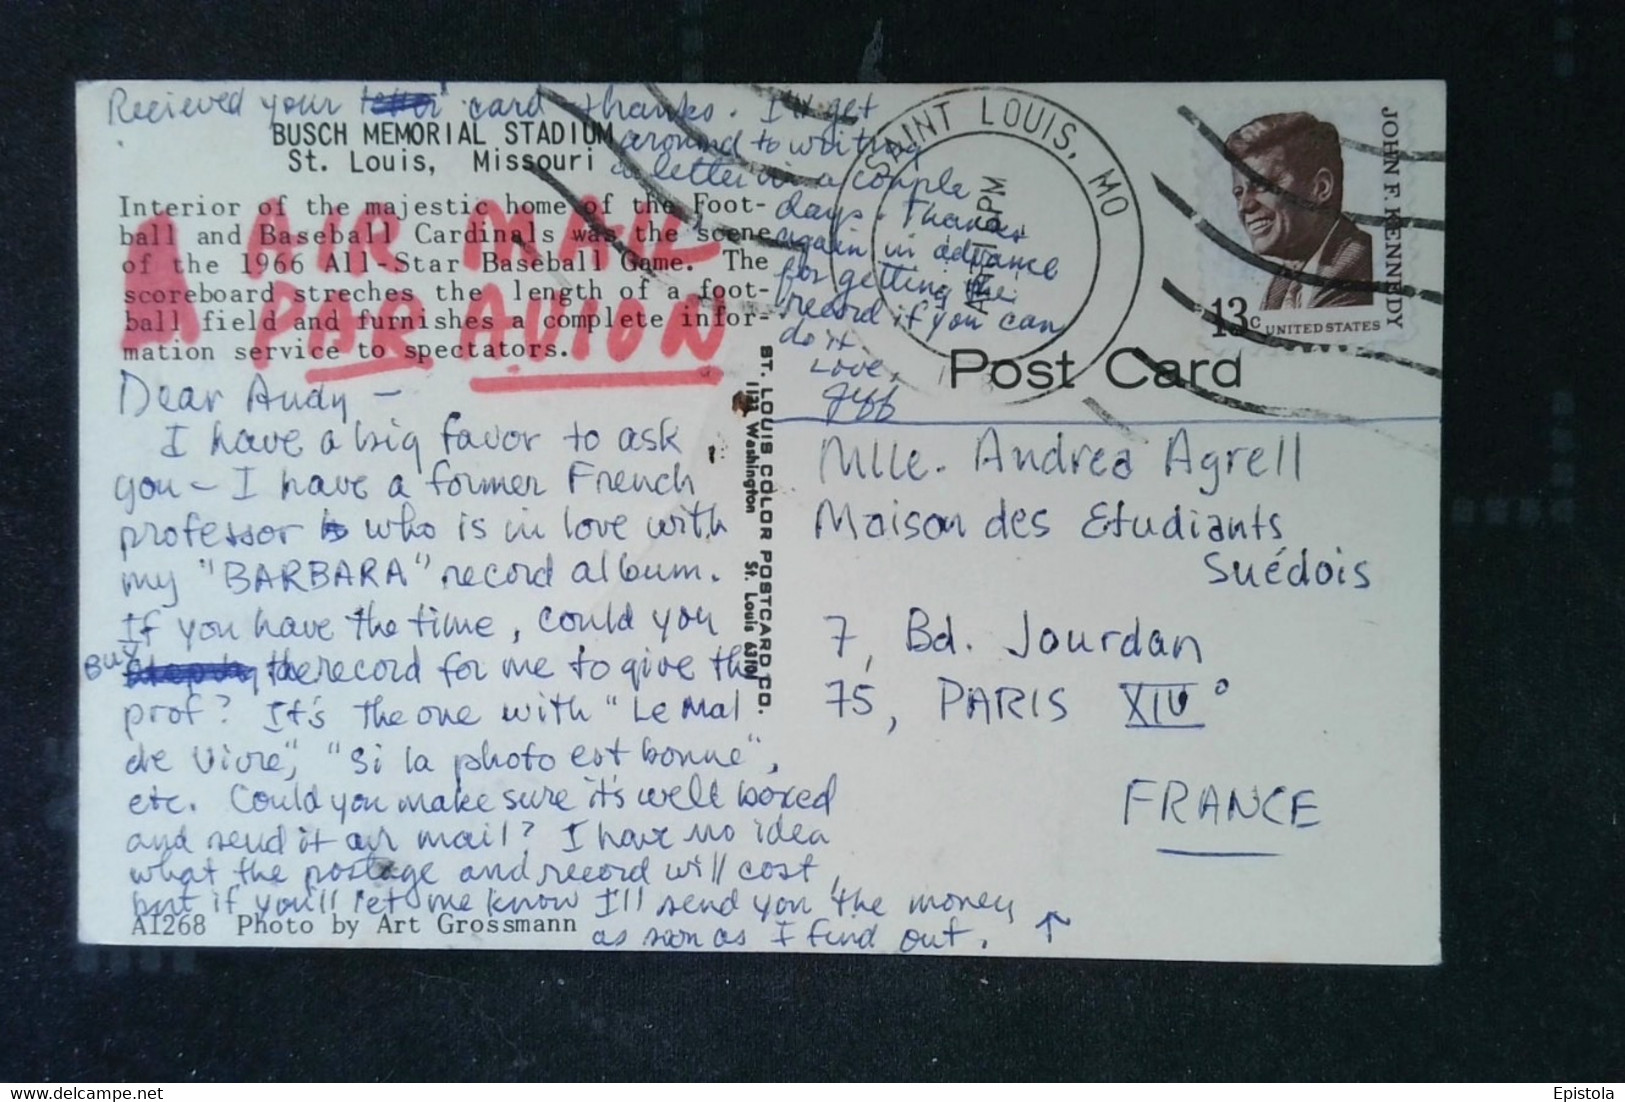 Recieved your letter card thanks. I'll get
around to writing
a letter in a couple
days. Thanks
again in advance
for getting the
record if you can
do it
Love,
Jeff
BUSCH MEMORIAL STADIUM
St. Louis, Missouri
Interior of the majestic home of the Foot-
ball and Baseball Cardinals was the scene
of the 1966 All-Star Baseball Game. The
scoreboard streches the length of a foot-
ball field and furnishes a complete infor-
mation service to spectators.
AIR MAIL
PAR AVION
Dear Andy –
I have a big favor to ask
you – I have a former French
professor who is in love with
my "BARBARA" record album.
If you have the time, could you
BUY the record for me to give the
prof? It's the one with "Le Mal
de Vivre", "Si la photo est bonne",
etc. Could you make sure it's well boxed
and send it air mail? I have no idea
what the postage and record will cost,
but if you'll let me know I'll send you the money
as soon as I find out. ↑
A1268 Photo by Art Grossmann
ST. LOUIS COLOR POSTCARD CO.
1133 Washington St. Louis 63101
SAINT LOUIS, MO
PM
JOHN F. KENNEDY
13c UNITED STATES
Post Card
Mlle. Andrea Agrell
Maison des Etudiants
Suédois
7, Bd. Jourdan
75, PARIS XIV°
FRANCE
delcampe.net
Epistola